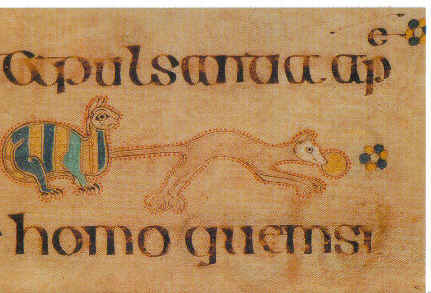 e
& pulsanti ap
homo quem si